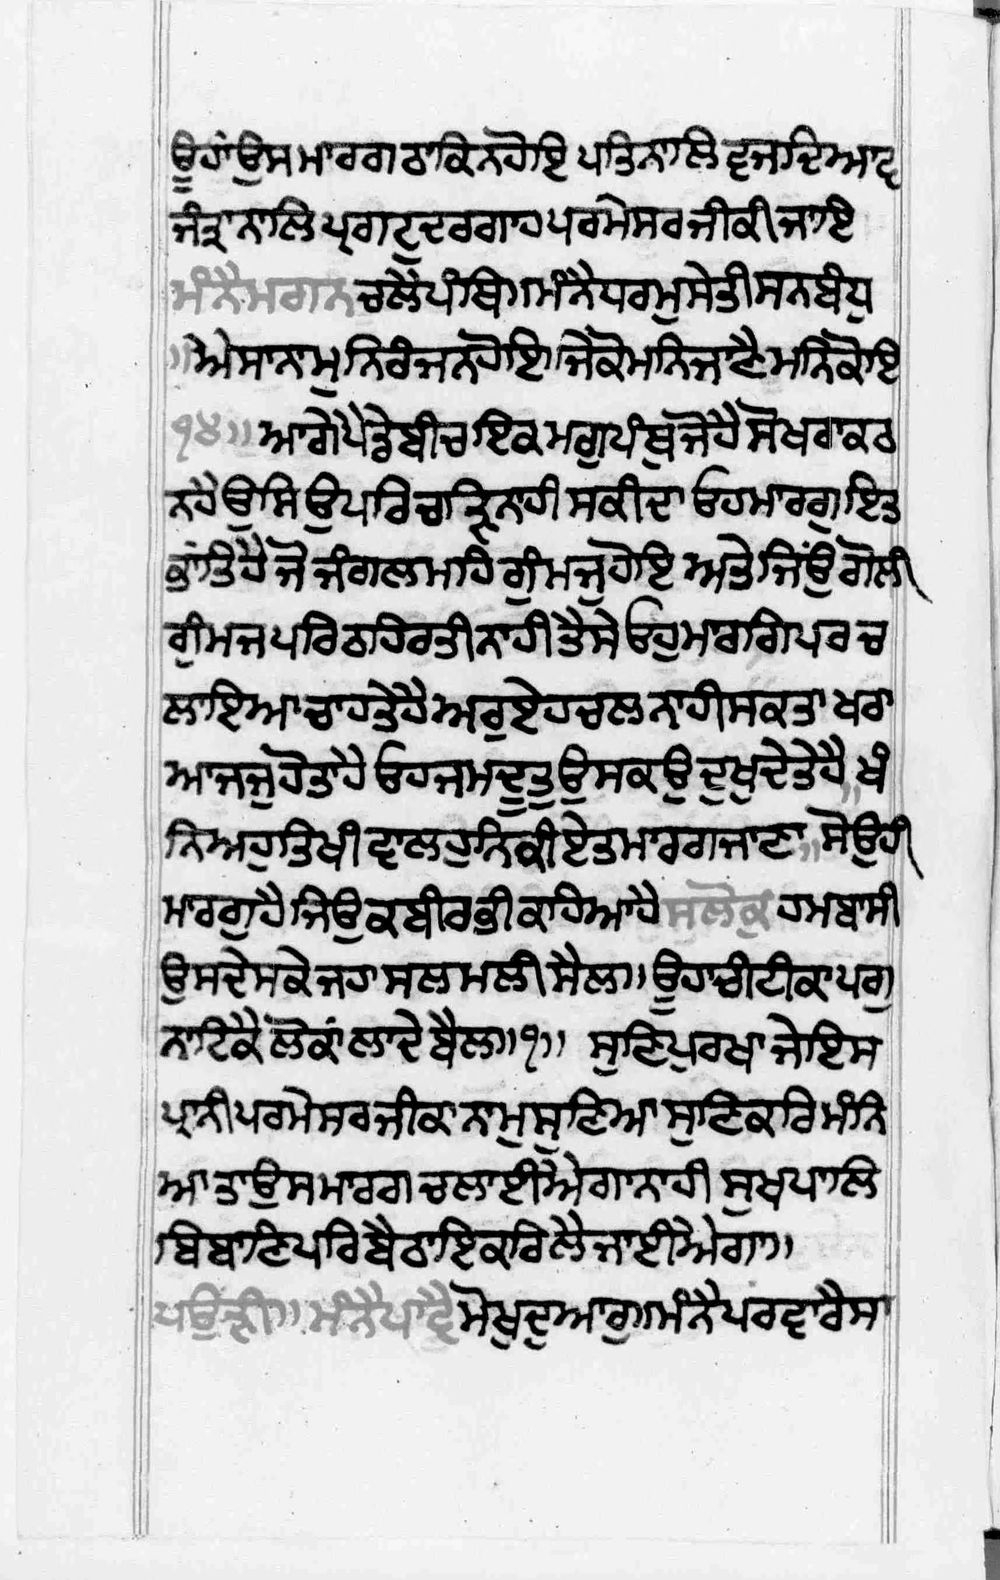 ਊਹਾਂ ਉਸ ਮਾਰਗ ਠਾਕਿ ਨ ਹੋਇ ਪਤਿ ਨਾਲਿ ਵਜਦਿਆ ਵ
ਜੰਤ੍ਰਾ ਨਾਲਿ ਪ੍ਰਗਟੁ ਦਰਗਾਹ ਪਰਮੇਸਰ ਜੀ ਕੀ ਜਾਇ
ਮੰਨੈ ਮਗ ਨ ਚਲੈ ਪੰਥਿ॥ ਮੰਨੈ ਧਰਮੁ ਸੇਤੀ ਸਨਬੰਧੁ
॥ਐਸਾ ਨਾਮੁ ਨਿਰੰਜਨ ਹੋਇ। ਜੇ ਕੋ ਮਨਿ ਜਾਣੈ ਮਨਿ ਕੋਇ
੧੪॥ ਆਗੇ ਪੈਡੇ ਬੀਚ ਇਕ ਮਗੁ ਪੰਥੁ ਜੋ ਹੈ ਸੋ ਖਰਾ ਕਠ
ਨ ਹੈ ਉਸਿ ਉਪਰਿ ਚੜਿ ਨਾਹੀ ਸਕੀਦਾ ਓਹ ਮਾਰਗੁ ਇਤ
ਭਾਂਤਿ ਹੈ ਜੋ ਜੰਗਲ ਮਾਹਿ ਗੁੰਮਜੁ ਹੋਇ ਅਤੇ ਜਿਉਂ ਗੋਲੀ
ਗੁੰਮਜ ਪਰਿ ਠਹਿਰਤੀ ਨਾਹੀ ਤੈਸੇ ਓਹੁ ਮਾਰਗਿ ਪਰ ਚ
ਲਾਇਆ ਚਾਹਤੇ ਹੈ ਅਰੁ ਏਹ ਚਲ ਨਾਹੀ ਸਕਤਾ ਖਰਾ
ਆਜਜੁ ਹੋਤਾ ਹੈ ਓਹ ਜਮਦੂਤੁ ਉਸ ਕਉ ਦੁਖੁ ਦੇਤੇ ਹੈ॥ ਖੰ
ਨਿਅਹੁ ਤਿਖੀ ਵਾਲਹੁ ਨਿਕੀ ਏਤ ਮਾਰਗ ਜਾਣਾ॥ ਸੋ ਉਹੀ
ਮਾਰਗੁ ਹੈ ਜਿਉ ਕਬੀਰ ਭੀ ਕਹਿਆ ਹੈ ਸਲੋਕੁ ਹਮ ਬਾਸੀ
ਉਸ ਦੇਸ ਕੇ ਜਹਾ ਸਲਮਲੀ ਸੈਲ॥ ਊਹਾ ਚੀਟੀ ਕਾ ਪਗੁ
ਨਾ ਟਿਕੈ ਲੋਕਾਂ ਲਾਦੇ ਬੈਲ॥੧॥ ਸੁਣਿ ਪੁਰਖਾ ਜੇ ਇਸ
ਪ੍ਰਾਨੀ ਪਰਮੇਸਰ ਜੀ ਕਾ ਨਾਮੁ ਸੁਣਿਆ ਸੁਣਿ ਕਰਿ ਮੰਨਿ
ਆ ਤਾ ਉਸ ਮਾਰਗ ਚਲਾਈਐਗਾ ਨਾਹੀ ਸੁਖਪਾਲਿ
ਬਿਬਾਣਿ ਪਰਿ ਬੈਠਾਇ ਕਰਿ ਲੈ ਜਾਈਐਗਾ॥
ਪਉੜੀ॥ ਮੰਨੈ ਪਾਵੈ ਮੋਖੁ ਦੁਆਰੁ॥ ਮੰਨੈ ਪਰਵਾਰੈ ਸਾ